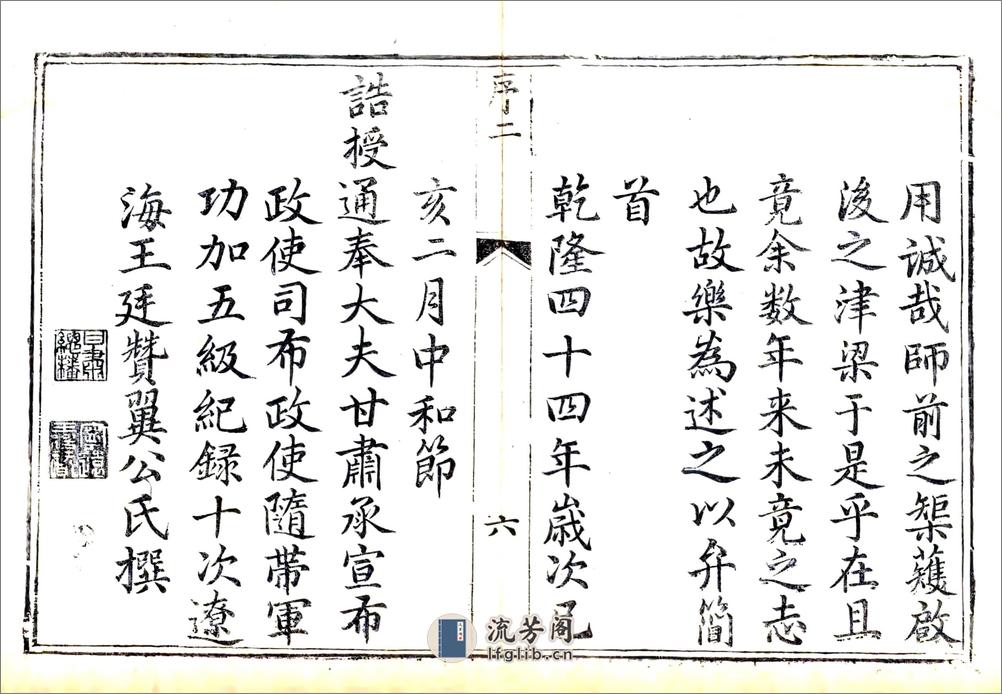 用誠哉師前之榘蒦啟
後之津梁于是乎在且
竟余数年来未竟之志
也故樂為述之以弁簡
首
乾隆四十四年歲次己
序二
六
亥二月中和節
誥授通奉大夫甘肅承宣布
政使司布政使隨帶軍
功加五級紀録十次遼
海王廷贊翼公氏撰
流芳阁
lfglib.cn